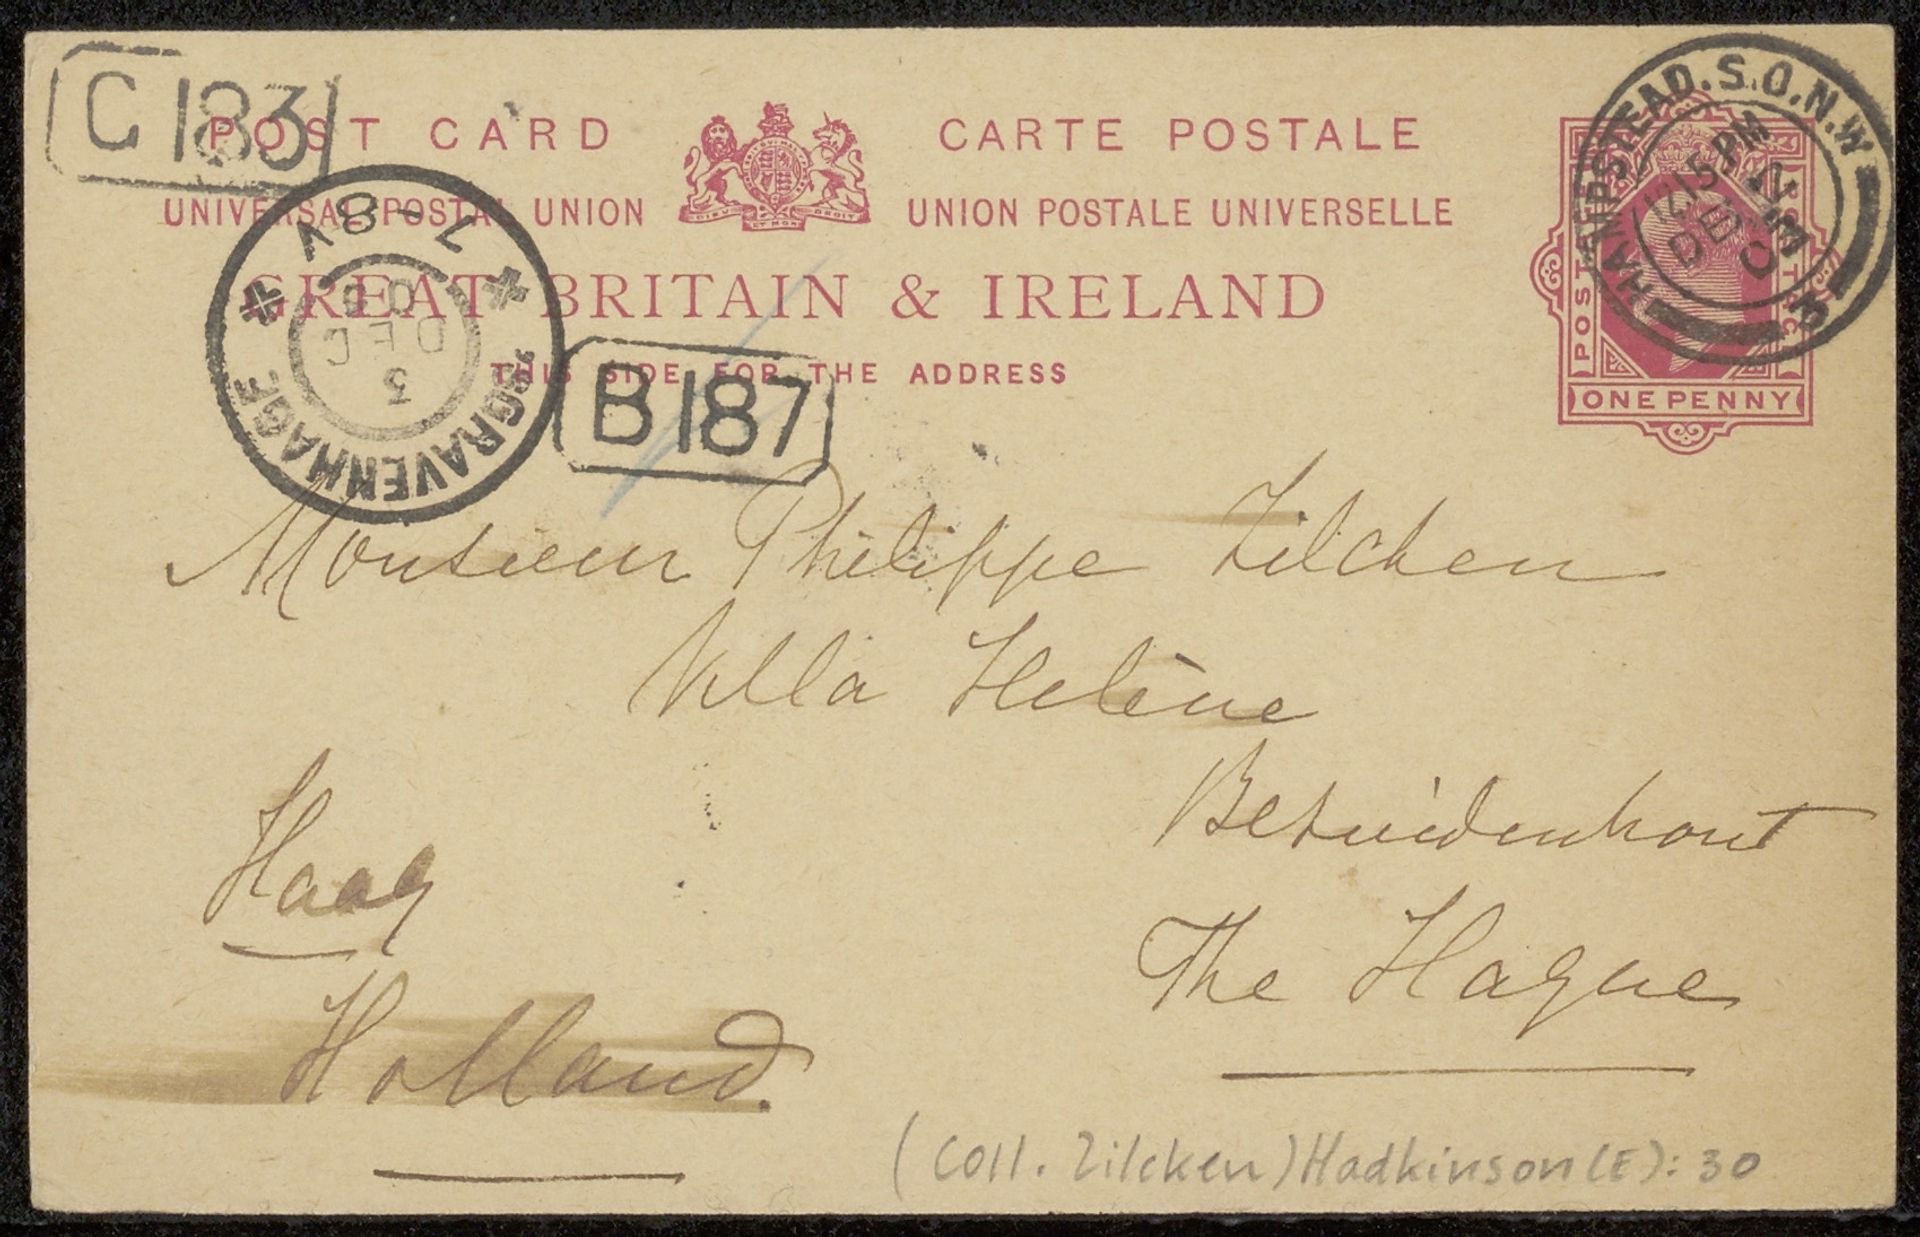 G 183
POST CARD CARTE POSTALE
UNIVERSAL POSTAL UNION UNION POSTALE UNIVERSELLE
GREAT BRITAIN & IRELAND
THIS SIDE FOR THE ADDRESS
DIEU ET MON DROIT
HAMPSTEAD.S.O.N.W
1215 PM
DE 2
03
POSTAGE
ONE PENNY
'SGRAVENHAGE
7 - 8V
3
DEC
03
B 187
Monsieur Philippe Zilcken
Villa Helène
Bezuidenhout
The Hague
Haag
Holland.
(Coll. Zilcken) Hodkinson (E): 30